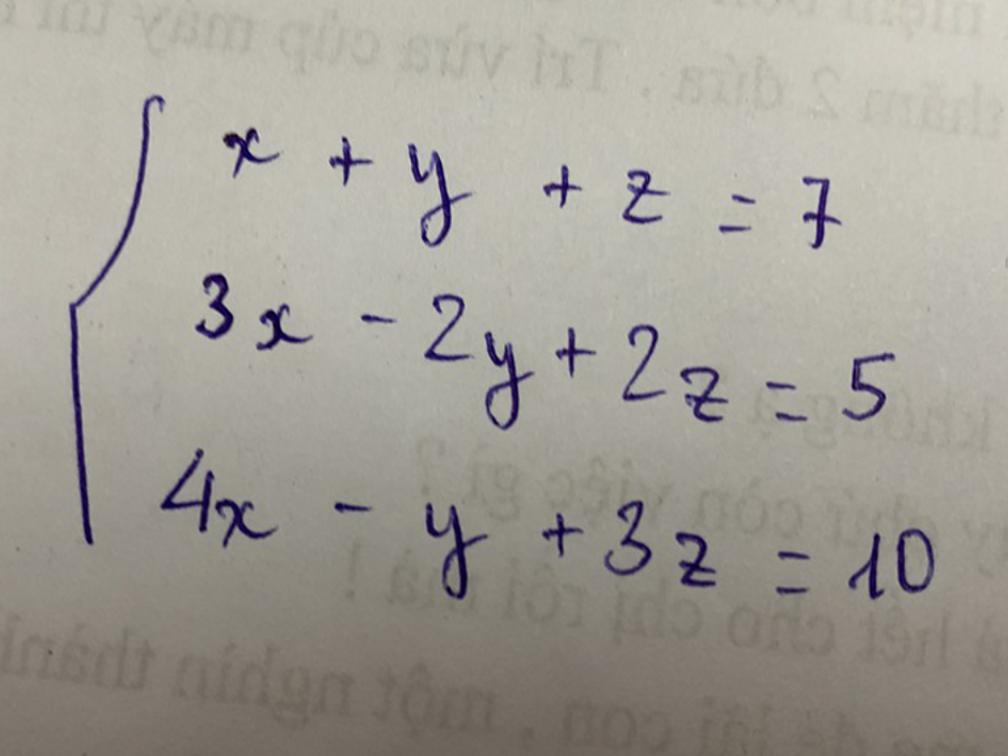 x + y + z = 7
3x - 2y + 2z = 5
4x - y + 3z = 10